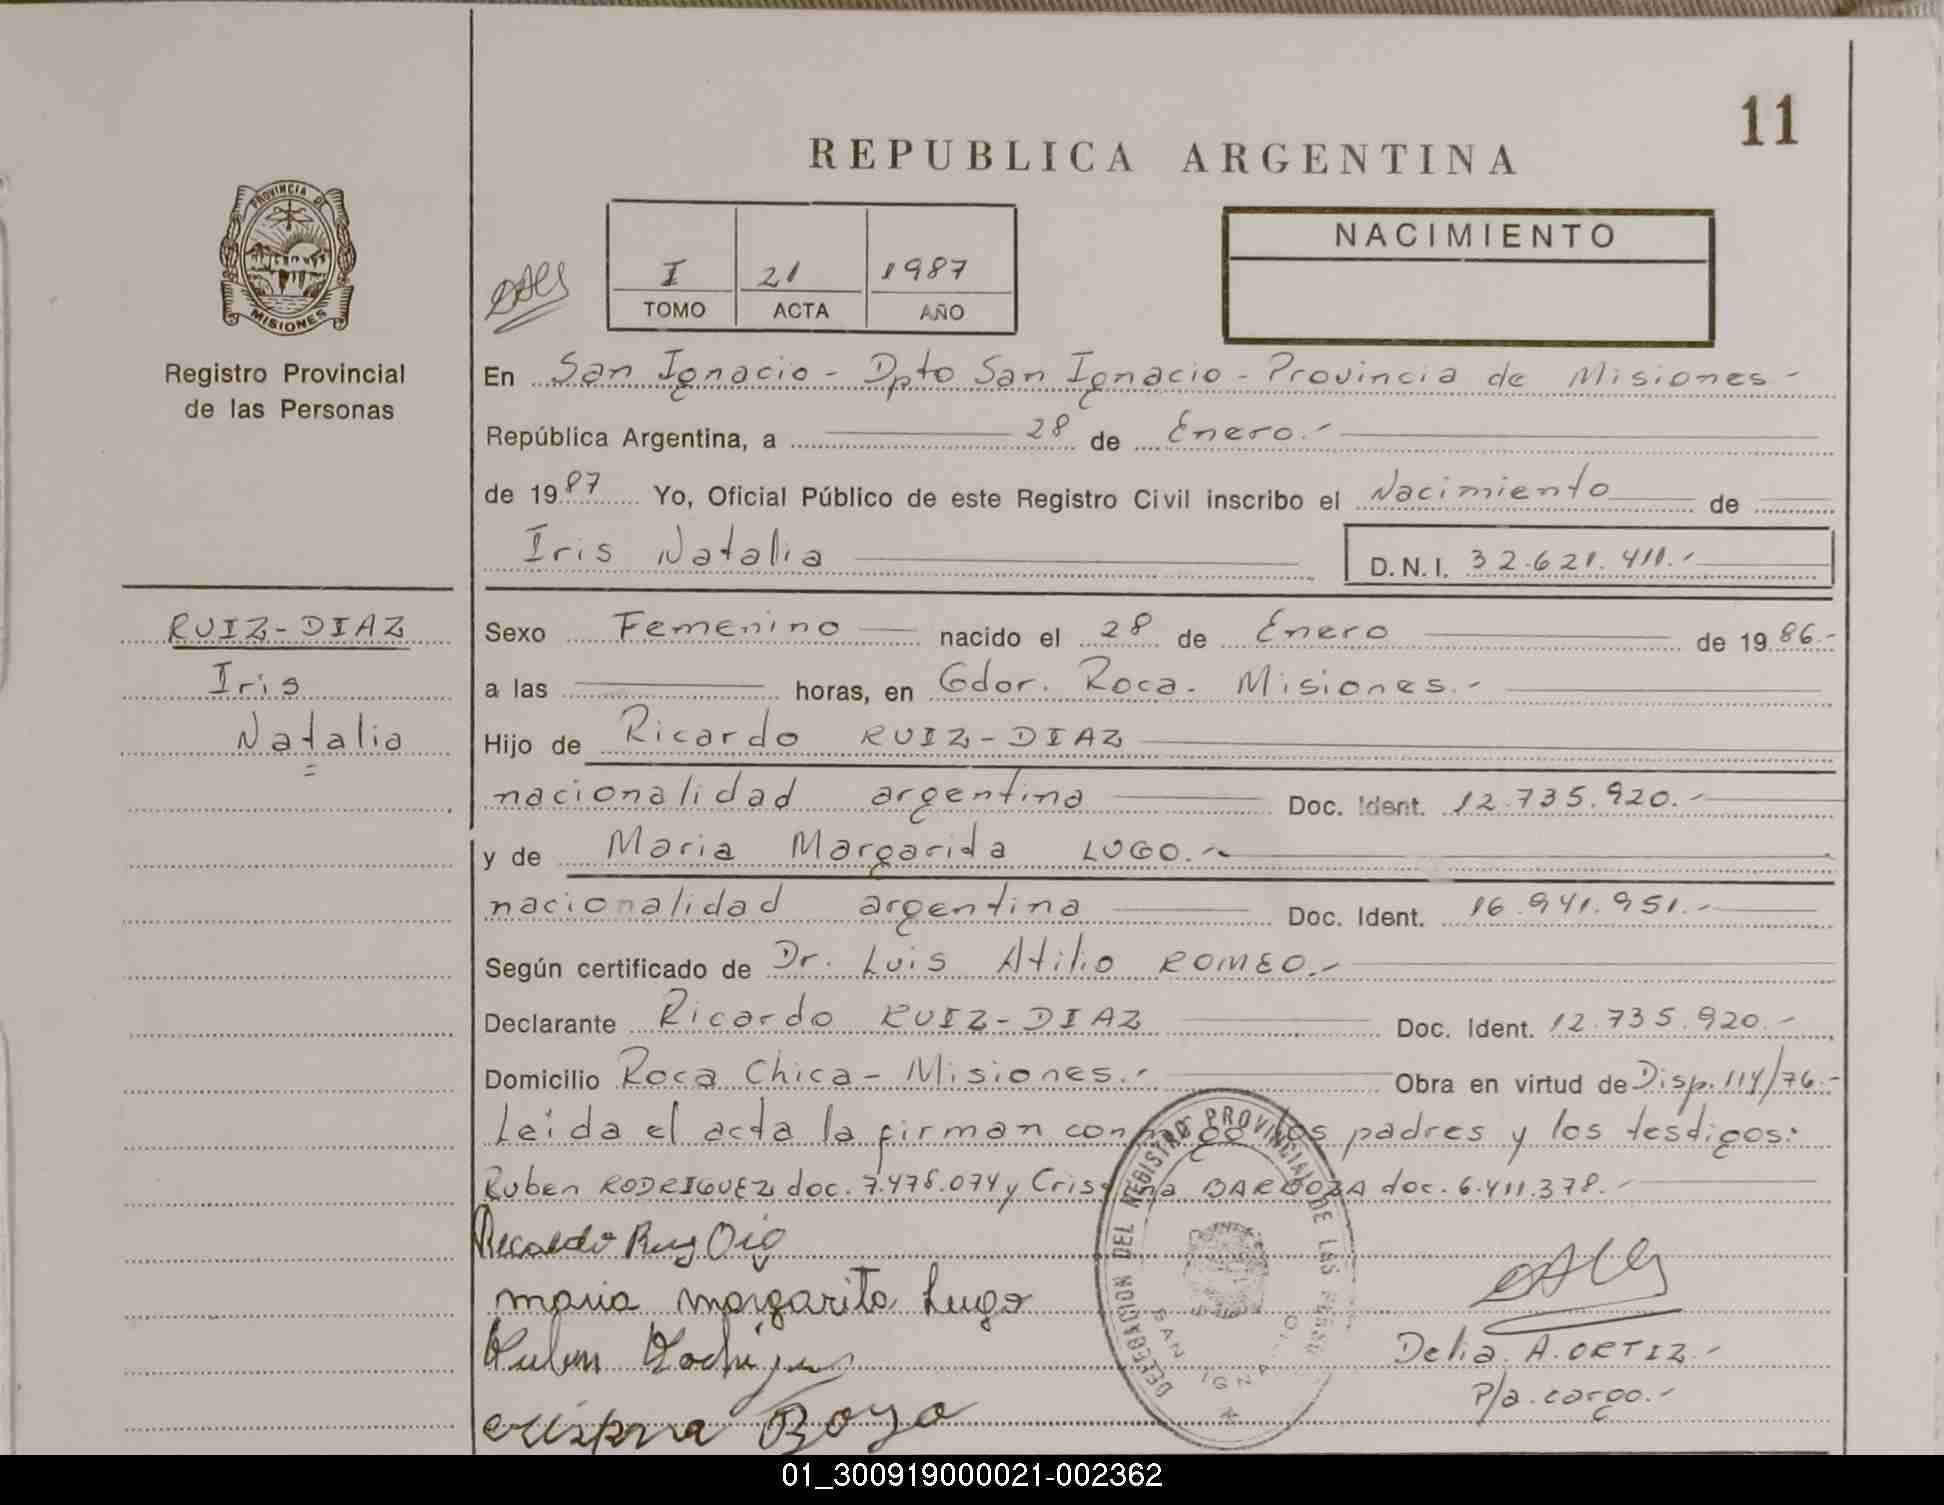 11
REPUBLICA ARGENTINA
PROVINCIA DE
MISIONES
Registro Provincial
de las Personas
I 21 1987
TOMO ACTA AÑO
NACIMIENTO
En San Ignacio - Dpto San Ignacio - Provincia de Misiones -
República Argentina, a 28 de Enero.-
de 1987 Yo, Oficial Público de este Registro Civil inscribo el Nacimiento de
Iris Natalia D.N.I. 32.621.411.-
RUIZ-DIAZ
Iris
Natalia
Sexo Femenino nacido el 28 de Enero de 1986.-
a las horas, en Gdor. Roca. Misiones.-
Hijo de Ricardo RUIZ-DIAZ
nacionalidad argentina Doc. Ident. 12.735.920.-
y de Maria Margarida LUGO.-
nacionalidad argentina Doc. Ident. 16.941.951.-
Según certificado de Dr. Luis Atilio ROMEO.-
Declarante Ricardo RUIZ-DIAZ Doc. Ident. 12.735.920.-
Domicilio Roca Chica - Misiones.- Obra en virtud de Disp. 114/76.-
Leida el acta la firman conmigo los padres y los testigos:
Ruben RODRIGUEZ doc. 7.478.074 y BARBOZA doc. 6.411.378.-
maria margarita Lugo
DELEGACION DEL REGISTRO PROVINCIAL DE LAS
SAN IGNACIO
Delia A. ORTIZ.-
P/a. cargo.-
01_300919000021-002362